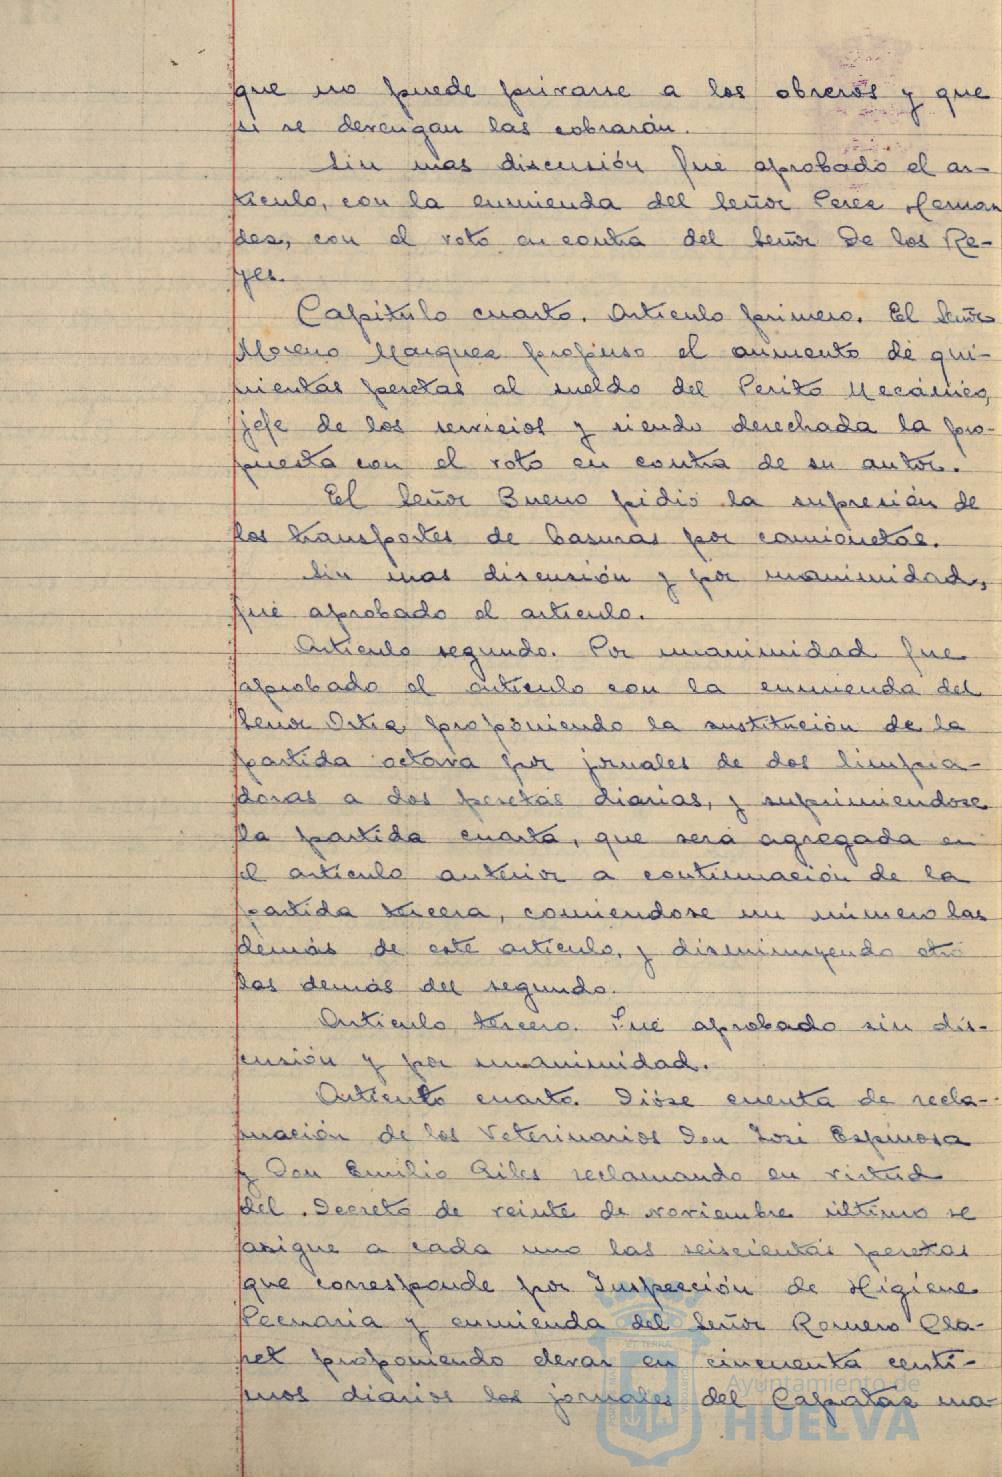 que no puede privarse a los obreros y que
si se devengan las cobrarán.
Sin mas discusión fué aprobado el ar-
tículo, con la enmienda del Señor Perez Hernan
dez, con el voto en contra del Señor De los Re-
yes.
Capítulo cuarto. Artículo primero. El Señor
Moreno Marquez propuso el aumento de qui-
nientas pesetas al sueldo del Perito Mecánico,
jefe de los servicios y siendo desechada la pro-
puesta con el voto en contra de su autor.
El Señor Bueno pidió la supresión de
los transportes de basuras por camionetas.
Sin mas discusión y por unanimidad,
fué aprobado el artículo.
Artículo segundo. Por unanimidad fue
aprobado el artículo con la enmienda del
Señor Ortiz proponiendo la sustitución de la
partida octava por jornales de dos limpia-
doras a dos pesetas diarias, y suprimiendose
la partida cuarta, que será agregada en
el artículo anterior a continuación de la
partida tercera, corriendose un número las
demás de este artículo, y disminuyendo otro
las demás del segundo.
Artículo tercero. Fué aprobado sin dis-
cusión y por unanimidad.
Artículo cuarto. Dióse cuenta de recla-
mación de los Veterinarios Don José Espinosa
y Don Emilio Giles reclamando en virtud
del Decreto de veinte de noviembre último se
asigne a cada uno las seiscientas pesetas
que corresponde por Inspección de Higiene
Pecuaria y enmienda del Señor Romero Cla-
ret proponiendo elevar en cincuenta centi-
mos diarios los jornales del Capataz ma-
Ayuntamiento de
HUELVA